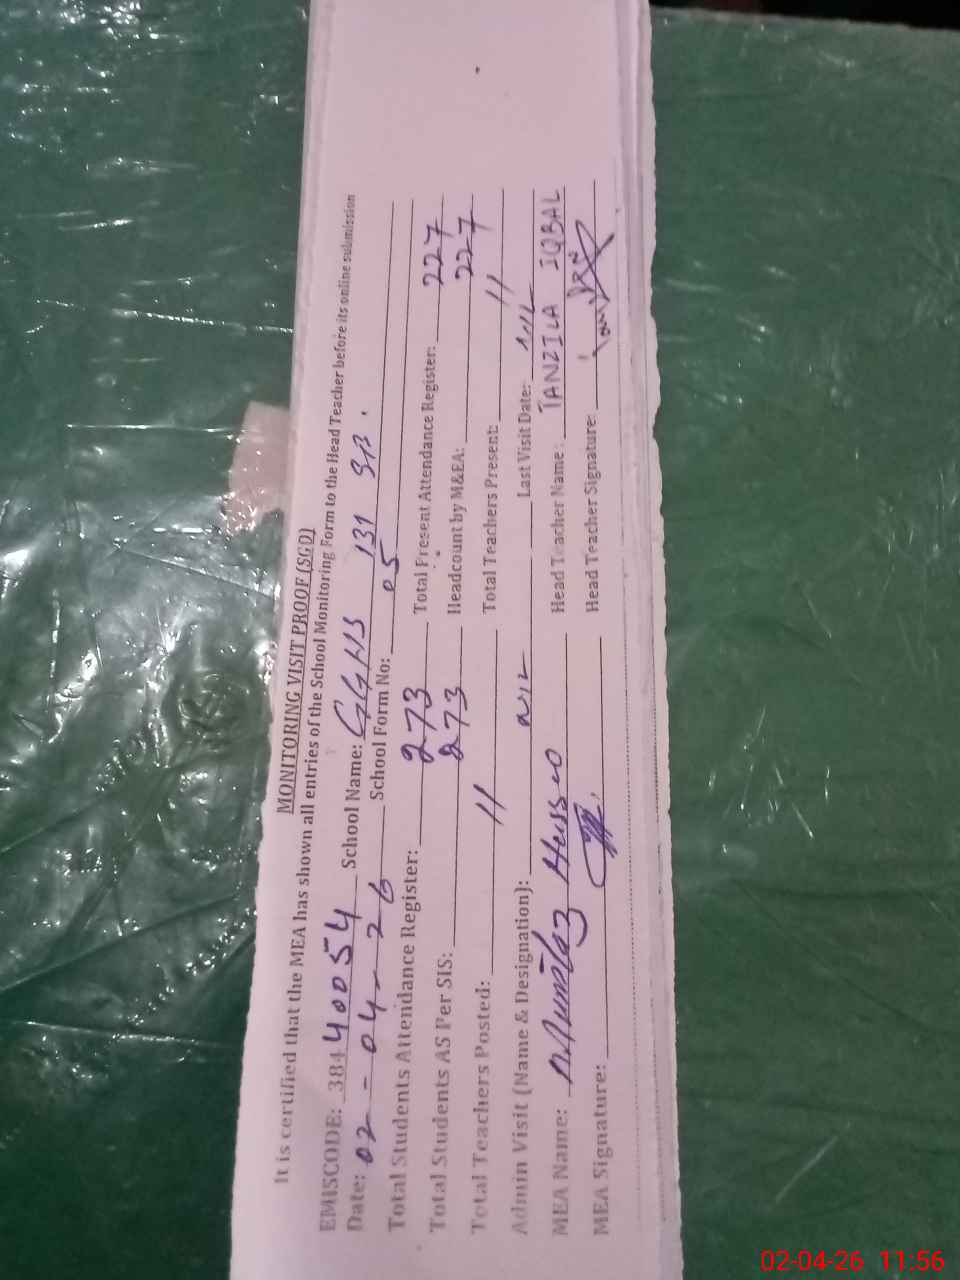 MONITORING VISIT PROOF (SGD)
It is certified that the MEA has shown all entries of the School Monitoring Form to the Head Teacher before its online submission
EMISCODE: 38440054 School Name: GGHS 131 SB.
Date: 02-04-26 School Form No: 05
Total Students Attendance Register: 273 Total Present Attendance Register: 227
Total Students AS Per SIS: 273 Headcount by M&EA: 227
Total Teachers Posted: 11 Total Teachers Present: 11
Admin Visit (Name & Designation): Nil Last Visit Date: Nil
MEA Name: M. Mumtaz Head Teacher Name: TANZILA IQBAL
MEA Signature: Head Teacher Signature:
02-04-26 11:56